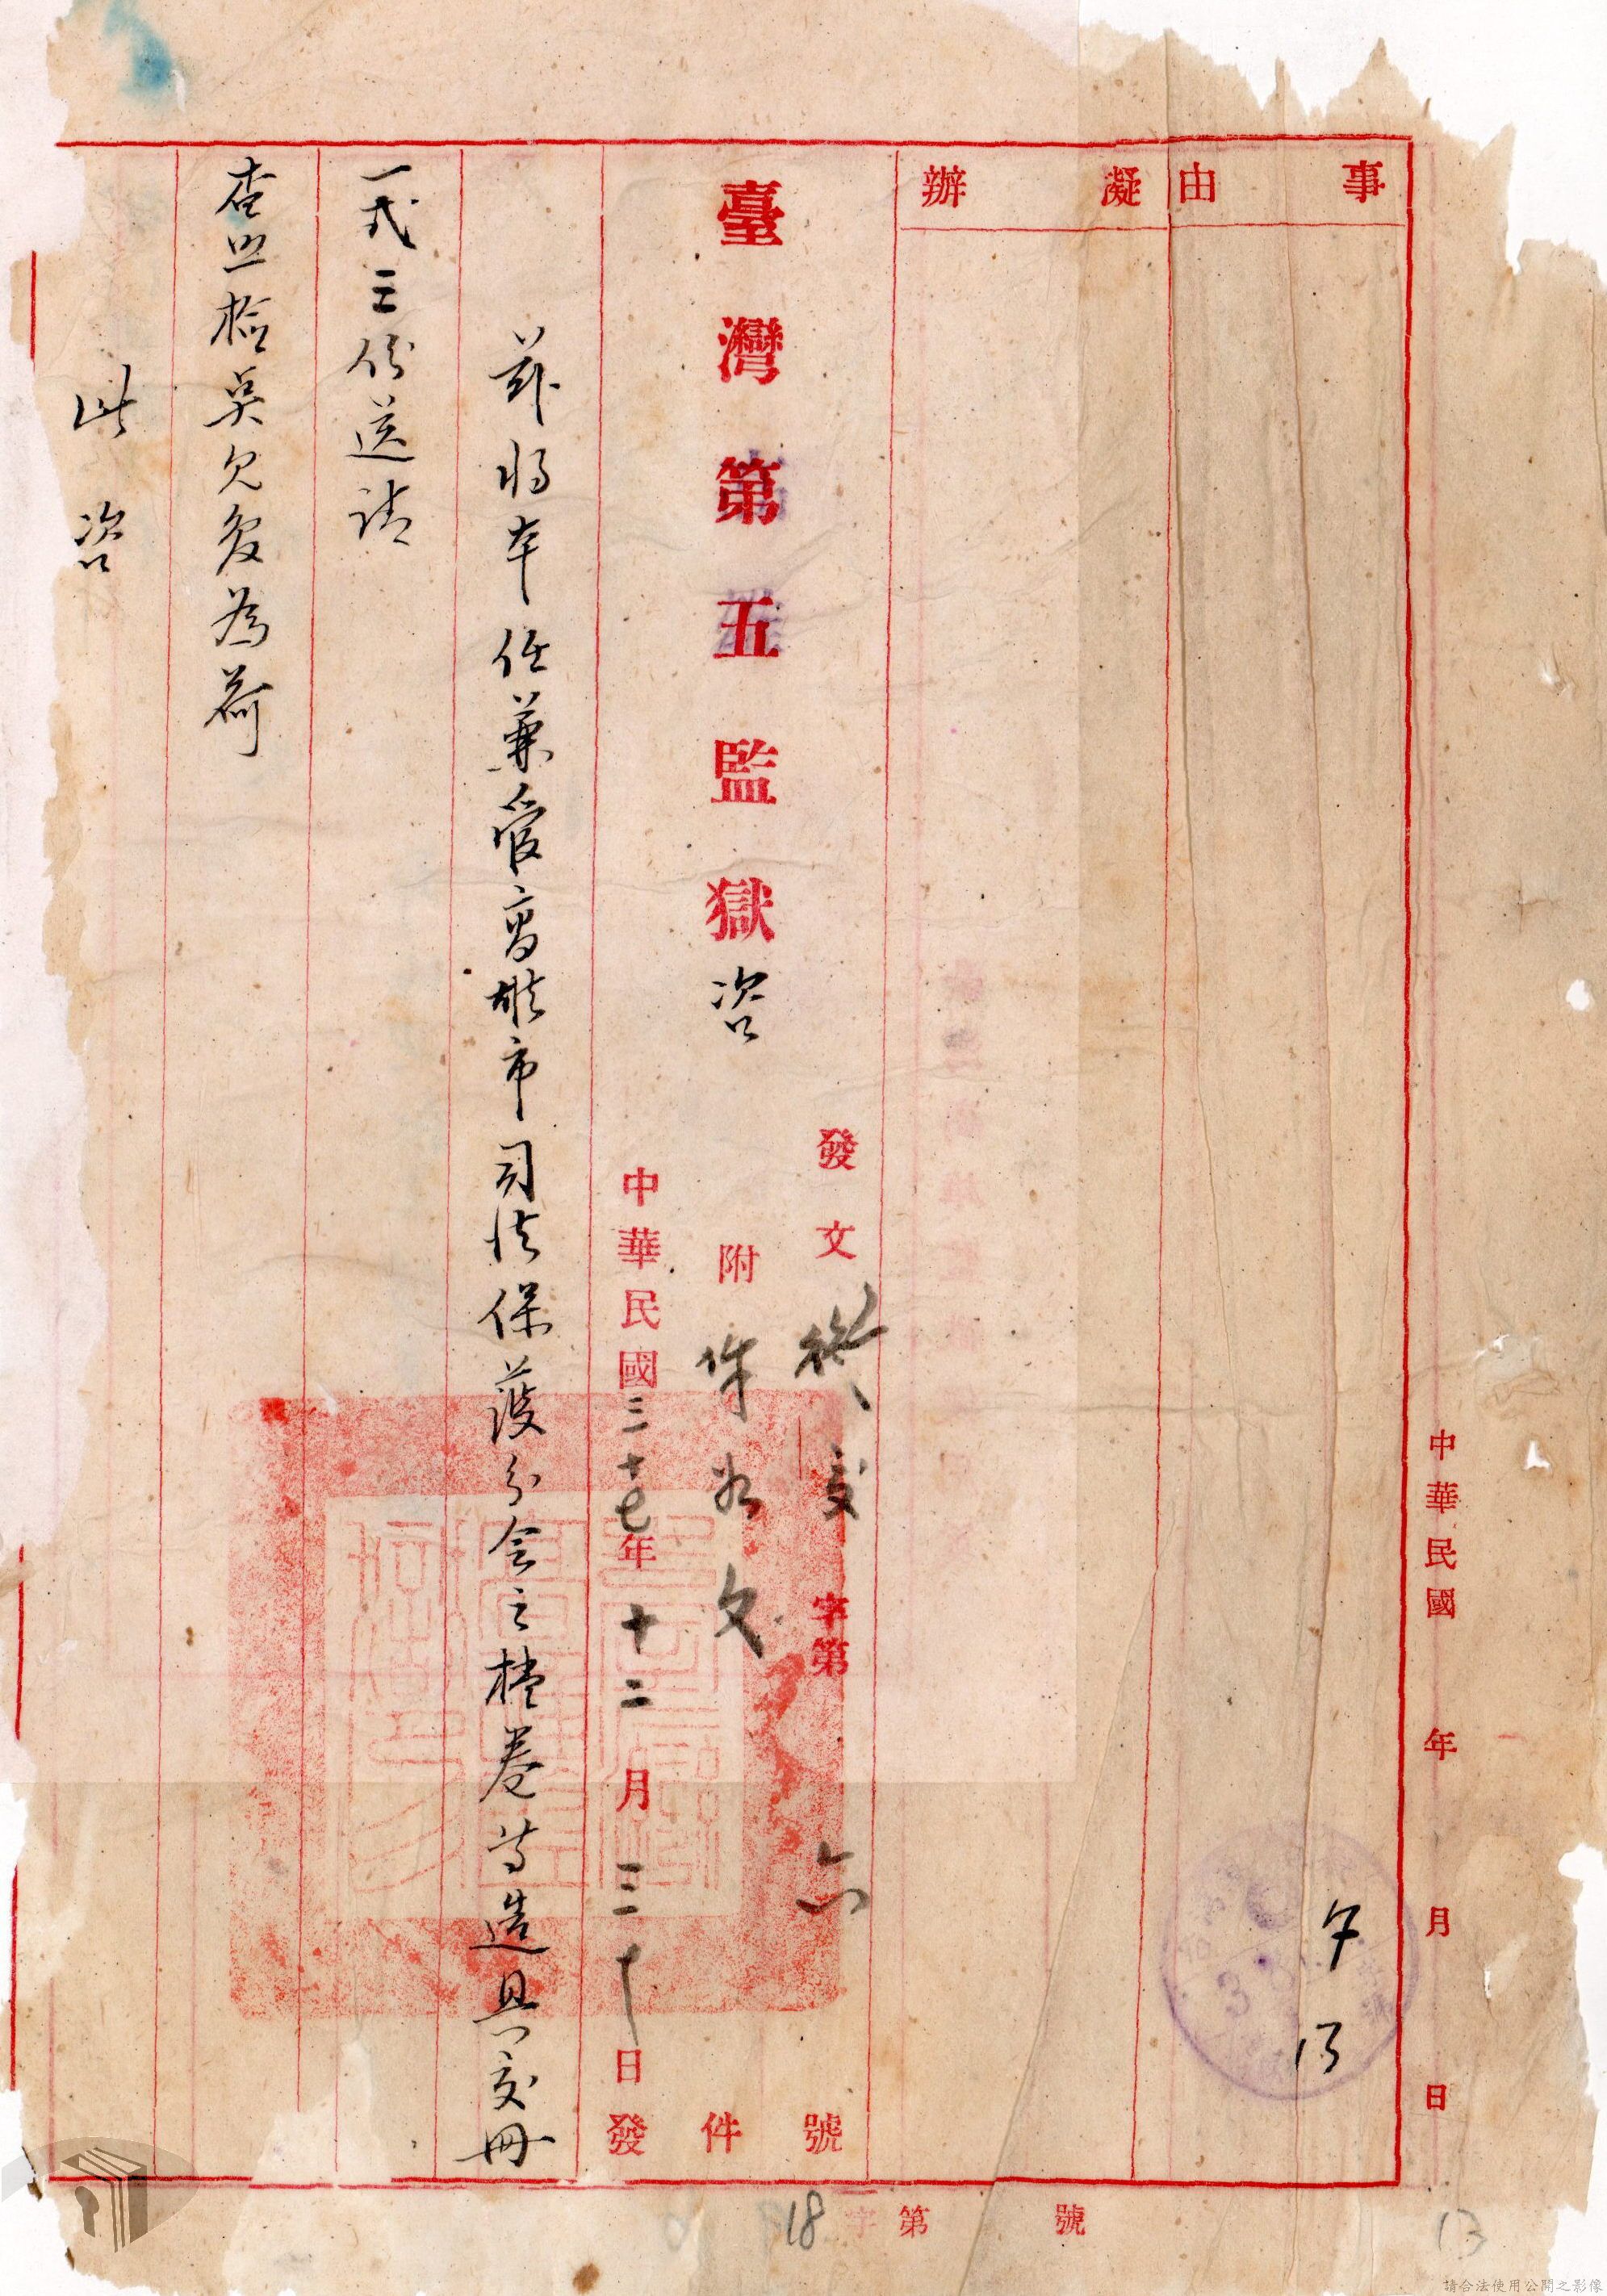 中華民國 年 月 日
事由
擬辦
發文 總交字第 六 號
臺灣第五監獄咨
附件 如文
中華民國三十七年十二月三十日發
茲將本任兼管高雄市司法保護分會之檔卷等造具交冊
一式三份送請
查照檢點見复為荷
此咨
18 字第 號
13
請合法使用公開之影像